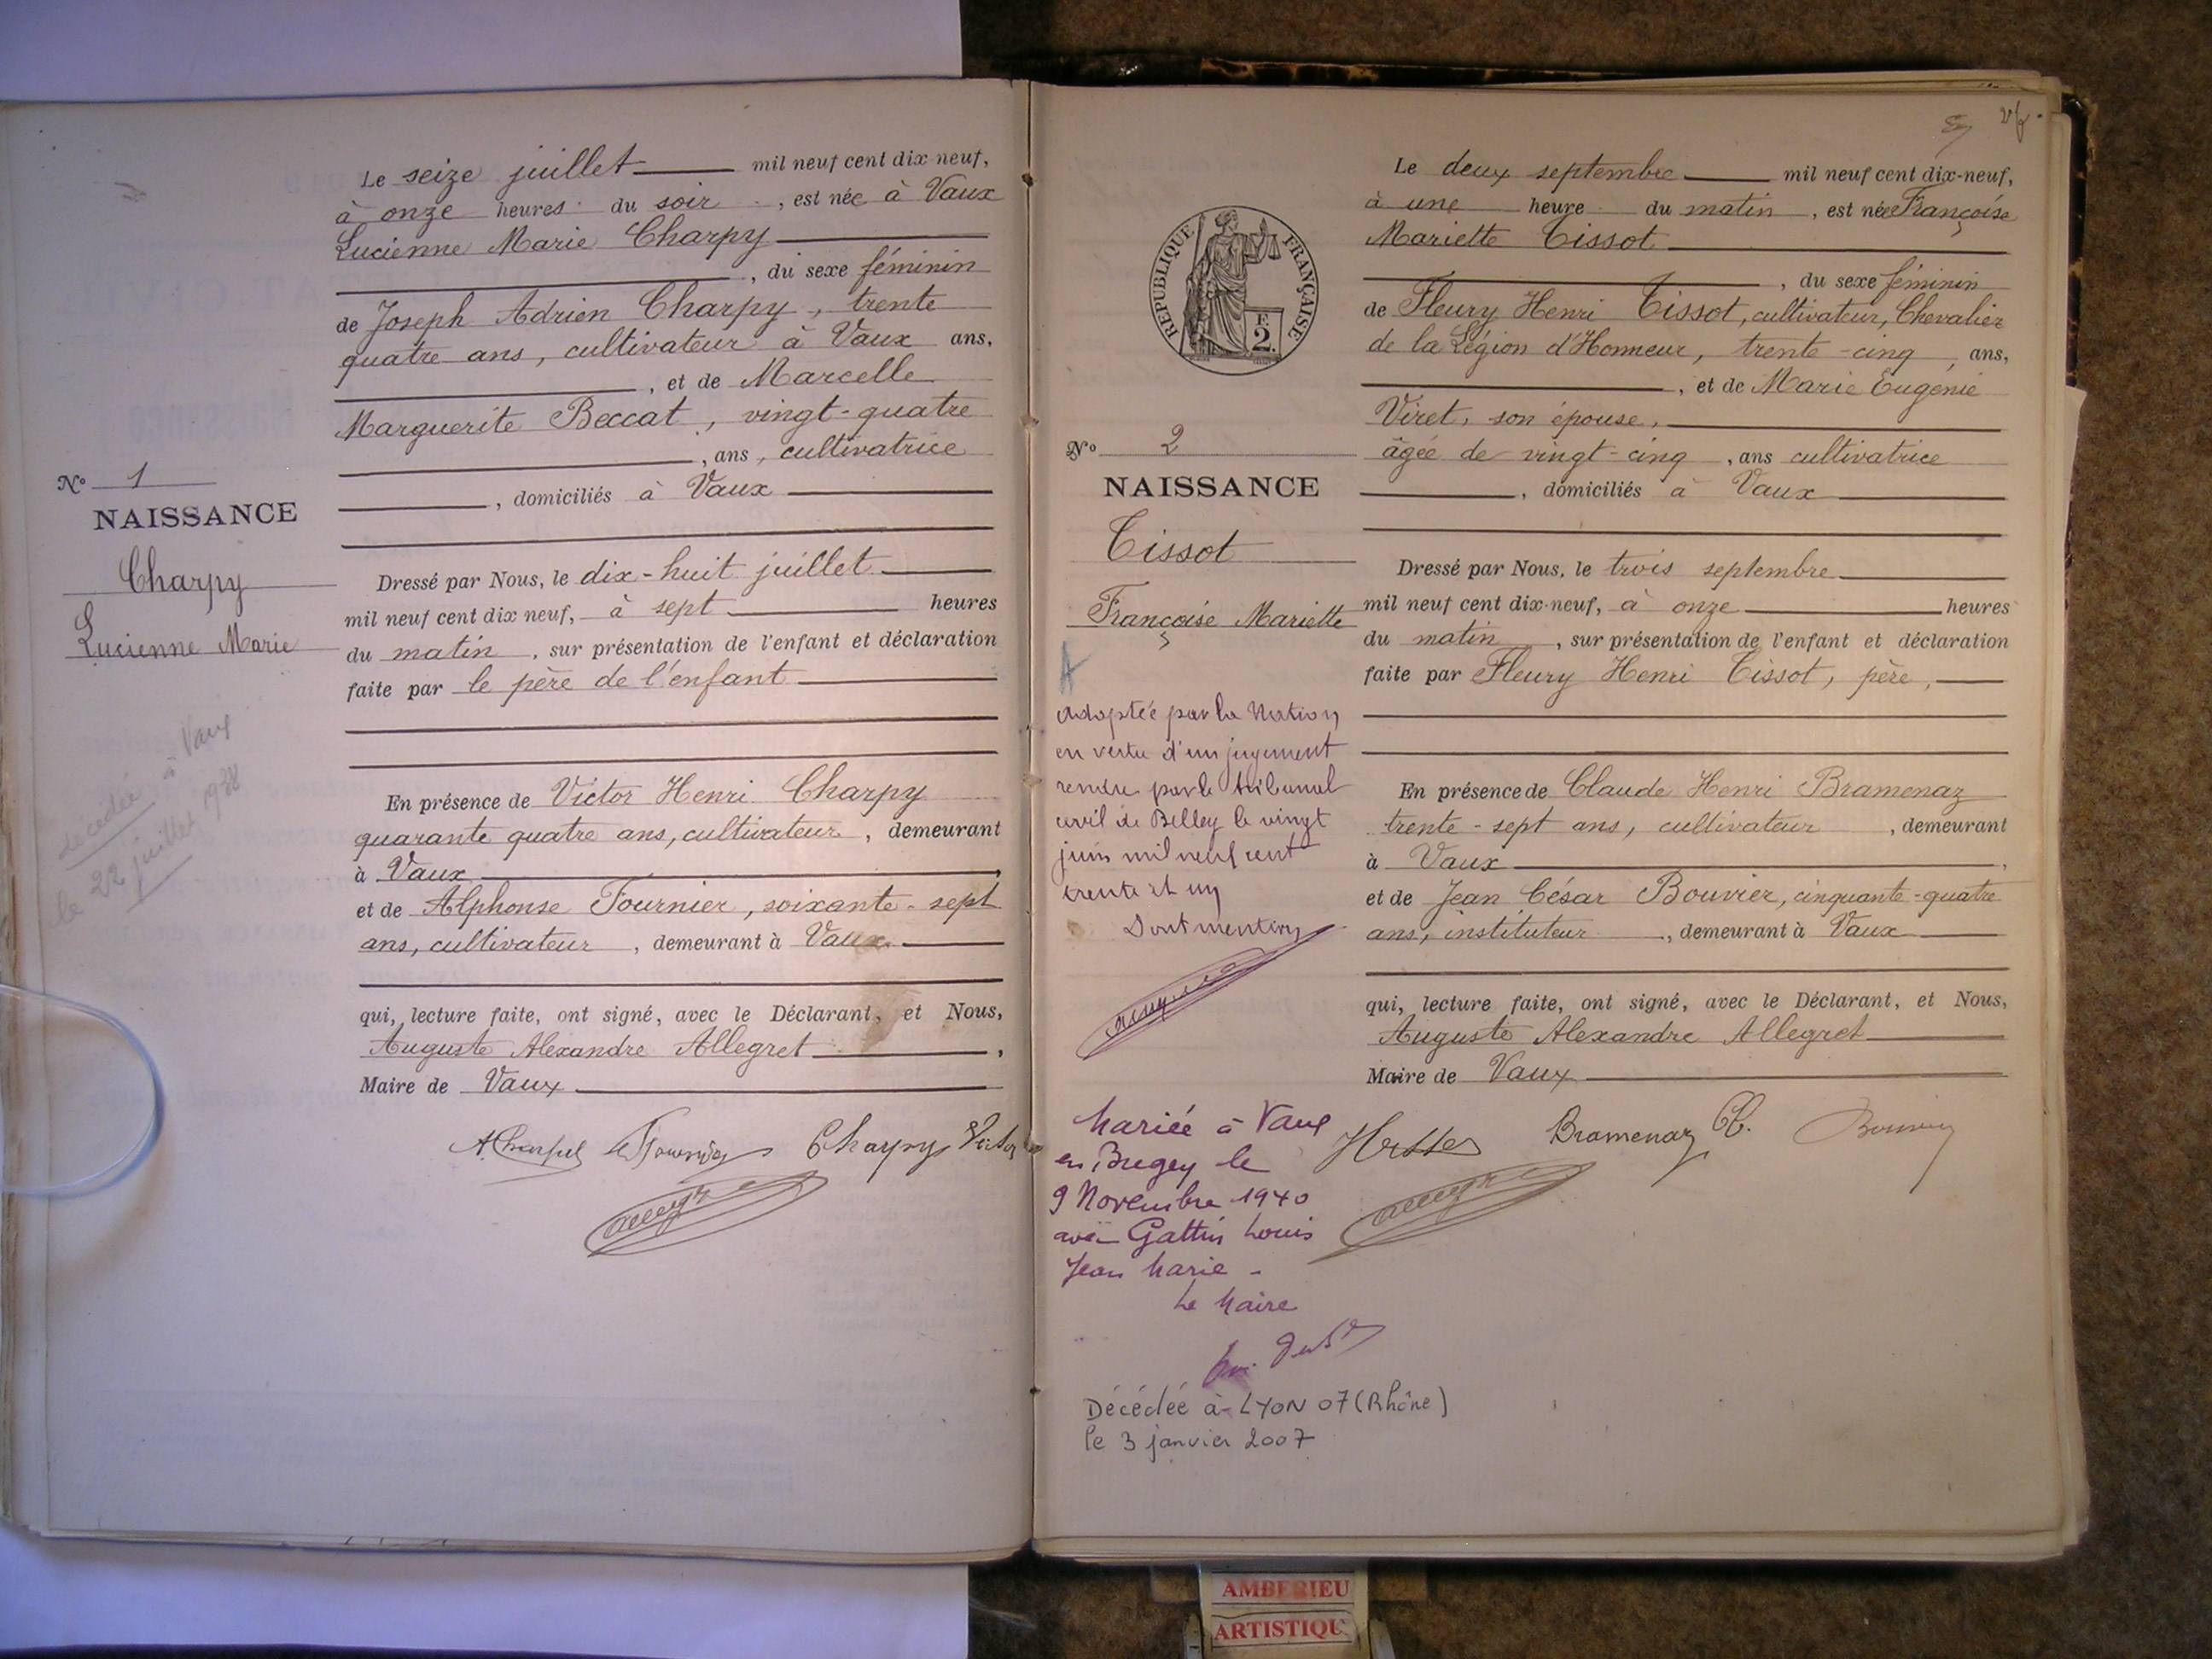 Le seize juillet mil neuf cent dix-neuf,
à onze heures du soir, est née à Vaux
Lucienne Marie Charpy
, du sexe féminin
de Joseph Adrien Charpy, trente
quatre ans, cultivateur à Vaux ans,
, et de Marcelle
Marguerite Beccat, vingt-quatre
, ans, cultivatrice
, domiciliés à Vaux
N° 1
NAISSANCE
Charpy
Lucienne Marie
décédée à Vaux
le 22 juillet 1938
Dressé par Nous, le dix-huit juillet
mil neuf cent dix neuf, à sept heures
du matin, sur présentation de l'enfant et déclaration
faite par le père de l'enfant
En présence de Victor Henri Charpy
quarante quatre ans, cultivateur, demeurant
à Vaux,
et de Alphonse Fournier, soixante-sept
ans, cultivateur, demeurant à Vaux
qui, lecture faite, ont signé, avec le Déclarant, et Nous,
Auguste Alexandre Allegret,
Maire de Vaux
Charpy Victor
REPUBLIQUE FRANÇAISE
2
F.
N° 2
NAISSANCE
Tissot
Françoise Mariette
A
Adoptée par la Nation
en vertu d'un jugement
rendu par le tribunal
civil de Belley le vingt
juin mil neuf cent
trente et un
Dont mention
Mariée à Vaux
en Bugey le
9 Novembre 1940
avec Gattin Louis
Jean Marie -
Le Maire
Décédée à LYON 07 (Rhône)
le 3 janvier 2007
Le deux septembre mil neuf cent dix-neuf,
à une heure du matin, est née Françoise
Mariette Tissot
, du sexe féminin
de Fleury Henri Tissot, cultivateur, Chevalier
de la Légion d'Honneur, trente-cinq, ans,
, et de Marie Eugénie
Viret, son épouse,
âgée de vingt-cinq, ans cultivatrice
, domiciliés à Vaux
Dressé par Nous, le trois septembre
mil neuf cent dix-neuf, à onze heures
du matin, sur présentation de l'enfant et déclaration
faite par Fleury Henri Tissot, père,
En présence de Claude Henri Bramenaz
trente-sept ans, cultivateur, demeurant
à Vaux,
et de Jean César Bouvier, cinquante-quatre
ans, instituteur, demeurant à Vaux
qui, lecture faite, ont signé, avec le Déclarant, et Nous,
Auguste Alexandre Allegret
Maire de Vaux
Bramenaz Bouvier
AMBERIEU
ARTISTIQU